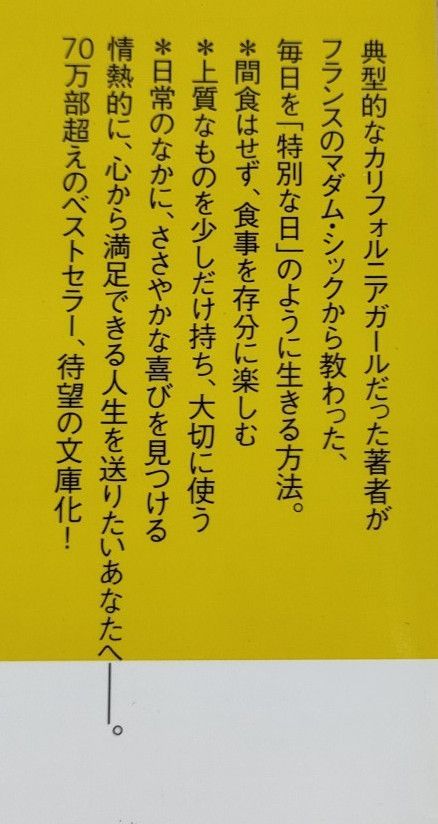 典型的なカリフォルニアガールだった著者が
フランスのマダム・シックから教わった、
毎日を「特別な日」のように生きる方法。
＊間食はせず、食事を存分に楽しむ
＊上質なものを少しだけ持ち、大切に使う
＊日常のなかに、ささやかな喜びを見つける
情熱的に、心から満足できる人生を送りたいあなたへ――。
70万部超えのベストセラー、待望の文庫化！